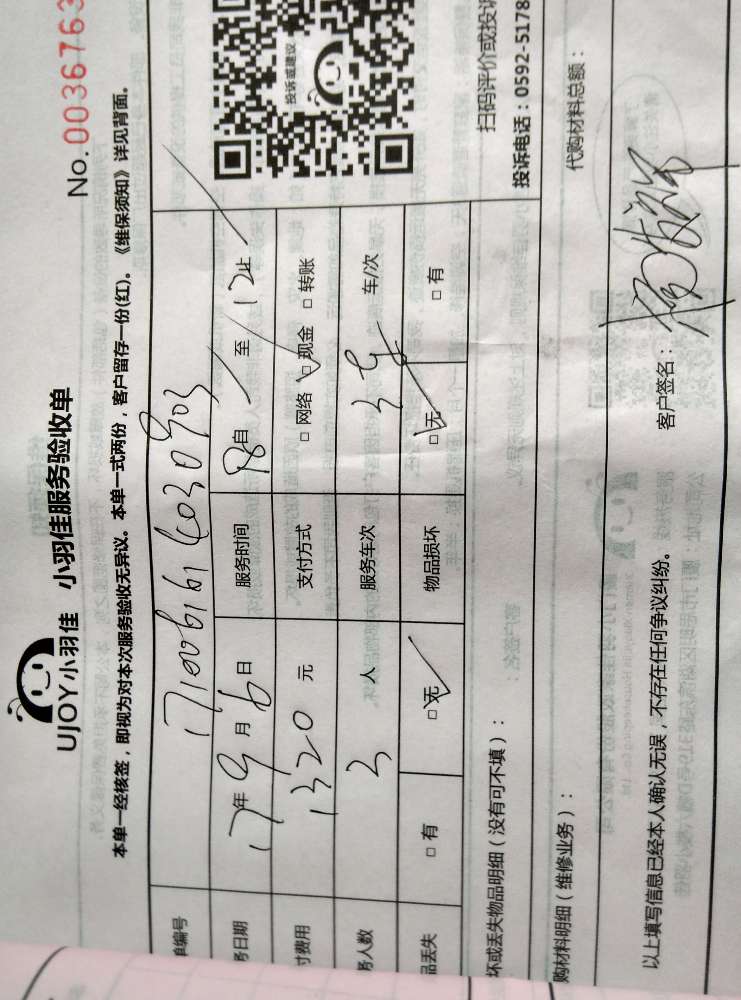 No. 0036763
UJOY小羽佳 小羽佳服务验收单
本单一经核签，即视为对本次服务验收无异议。本单一式两份，客户留存一份(红)。《维保须知》详见背面。
单编号
务日期 17年 9月 6日 服务时间 自 至 12止
付费用 1320 元 支付方式 □ 网络 □ 现金 □ 转账
务人数 3 人 服务车次 3车 车/次
品丢失 □ 有 □ 无 物品损坏 □ 无 □ 有
投诉或建议
扫码评价或投诉
投诉电话：0592-5178
坏或丢失物品明细（没有可不填）：
购材料明细（维修业务）： 代购材料总额：
以上填写信息已经本人确认无误，不存在任何争议纠纷。 客户签名：